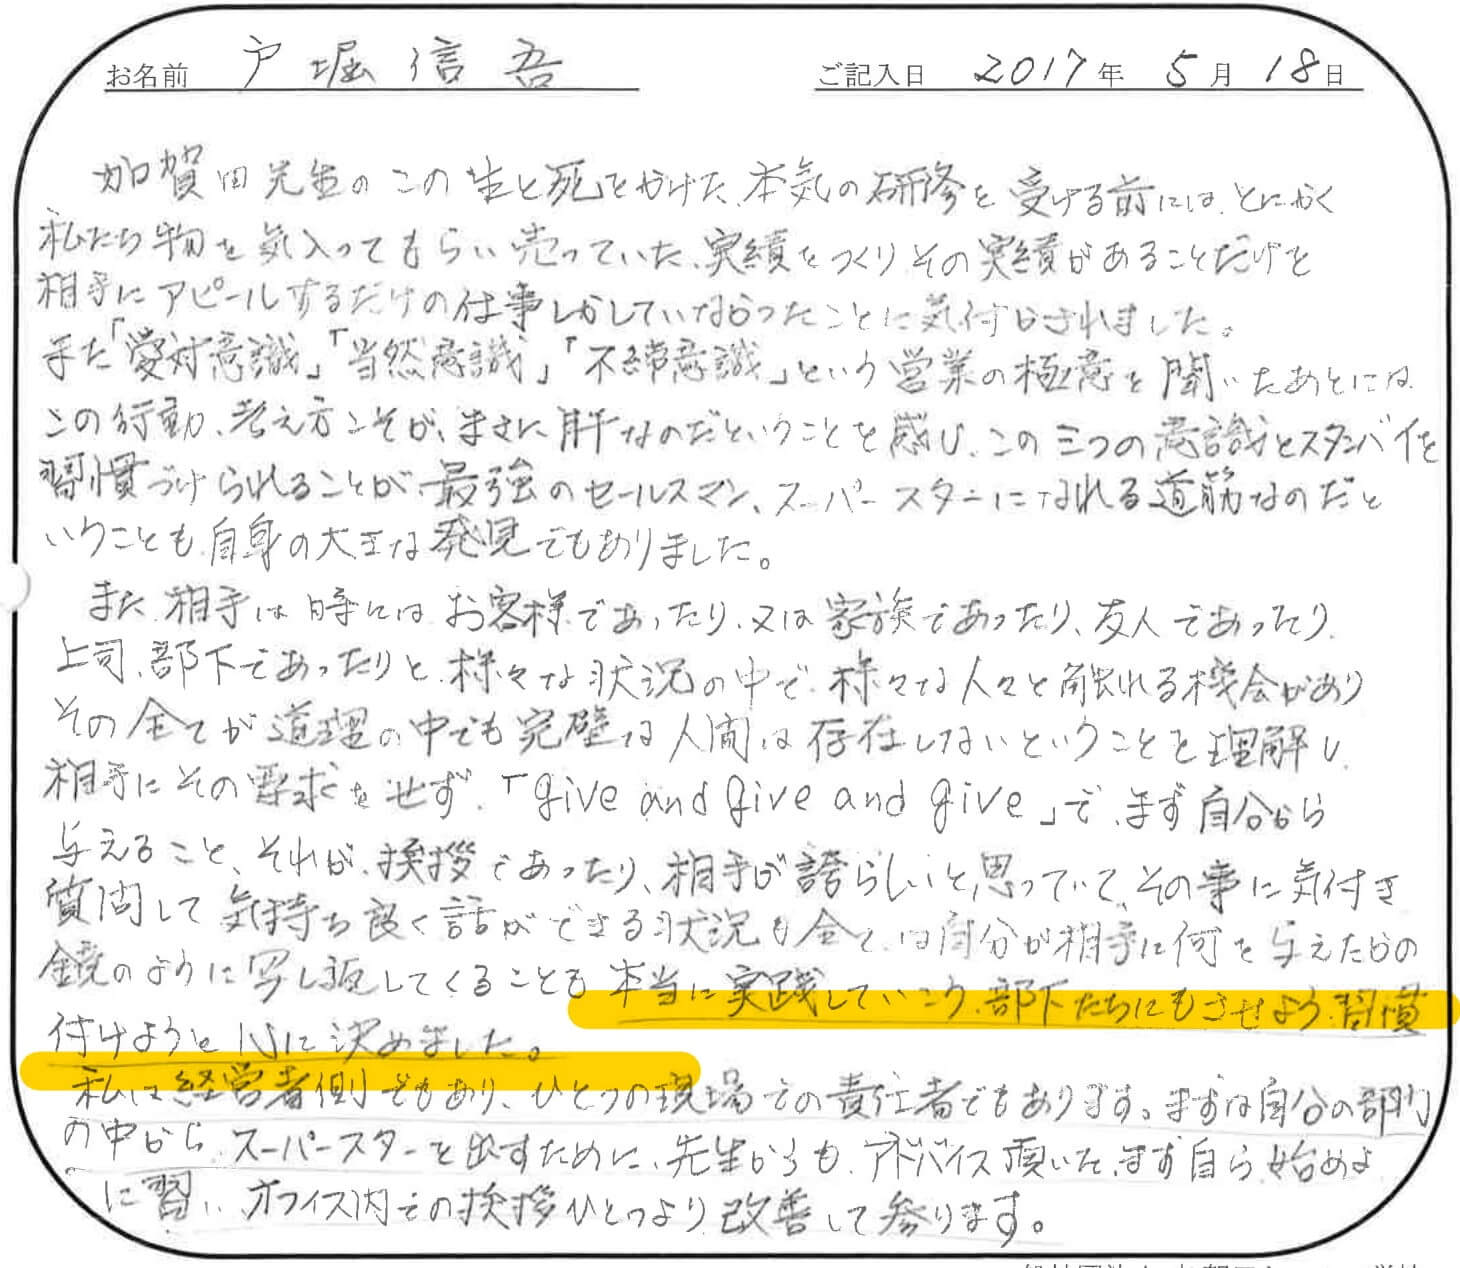 お名前 戸堀信吾 ご記入日 2017年 5月 18日
加賀田先生のこの生と死をかけた、本気の研修を受ける前には、とにかく
私たち物を気入ってもらい売っていた、実績をつくりその実績があることだけを
相手にアピールするだけの仕事しかしていなかったことに気付かされました。
また「愛対意識」「当然意識」「不錞意識」という営業の極意を聞いたあとには
この行動、考え方こそが、まさに肝なのだということを感じ、この三つの意識とスタンバイを
習慣づけられることが、最強のセールスマン、スーパースターになれる道筋なのだと
いうことも自身の大きな発見でもありました。
また相手は時にはお客様であったり、又は家族であったり、友人であったり、
上司、部下であったりと、様々な状況の中で、様々な人々と触れる機会があり
その全てが道理の中でも完璧な人間は存在しないということを理解し、
相手にその要求をせず、「give and give and give」で、まず自分から
与えること、それが、挨拶であったり、相手が誇らしいと思っていて、その事に気付き
質問して気持ち良く話ができる状況も全ては自分が相手に何を与えたかの
鏡のように写し返してくることも本当に実践していこう、部下たちにもさせよう、習慣
付けようと心に決めました。
私は経営者側でもあり、ひとつの現場での責任者でもあります。まずは自分の部門
の中から、スーパースターを出すために、先生からも、アドバイス頂いた、まず自ら始めよ
に習い、オフィス内での挨拶ひとつより改善して参ります。